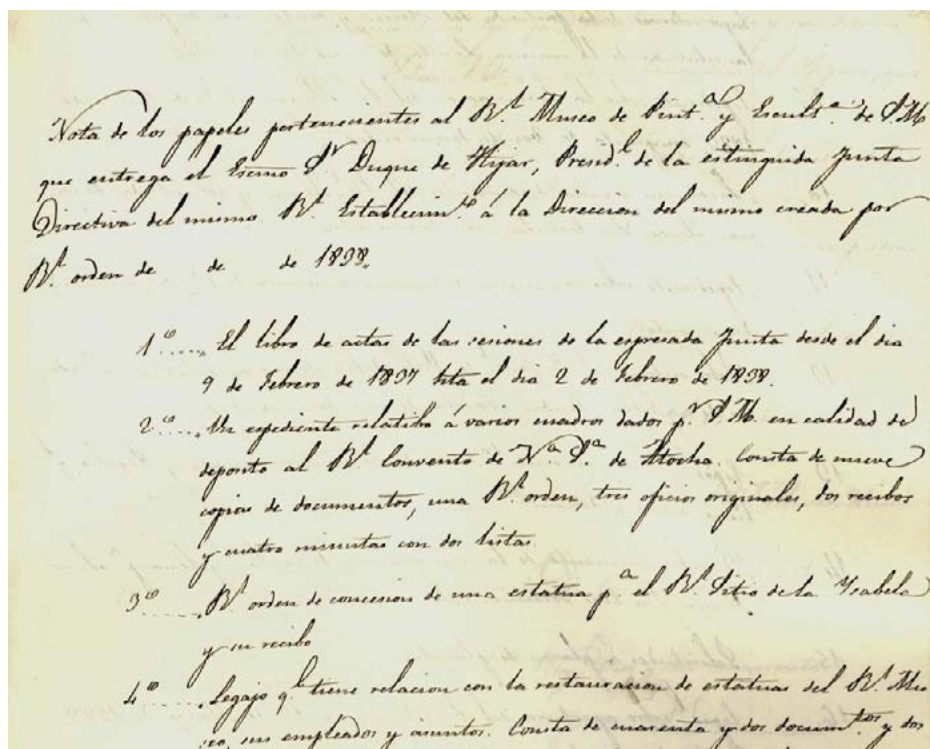 Nota de los papeles pertenecientes al Rl. Museo de Pint.a y Escult.a de S.M.
que entrega el Escmo Sr Duque de Hijar, Presid.te de la estinguida Junta
Directiva del mismo Rl. Establecim.to á la Direccion del mismo creada por
Rl. orden de de de 1838.
1º..... El libro de actas de las sesiones de la espresada Junta desde el dia
9 de Febrero de 1837 hta el dia 2 de Febrero de 1838.
2º..... Un espediente relatibo á varios cuadros dados pr. S.M. en calidad de
deposito al Rl. Convento de Na. Sa. de Atocha. Consta de nueve
copias de documentos, una Rl. orden, tres oficios originales, dos recibos
y cuatro minutas con dos listas
3º..... Rl. orden de concesion de una estatua pa. el Rl. Sitio de la Ysabela
y su recibo
4º..... Legajo qe. tiene relacion con la restauracion de estatuas del Rl. Mu
seo, sus empleados y asuntos. Consta de cuarenta y dos docum.tos y dos